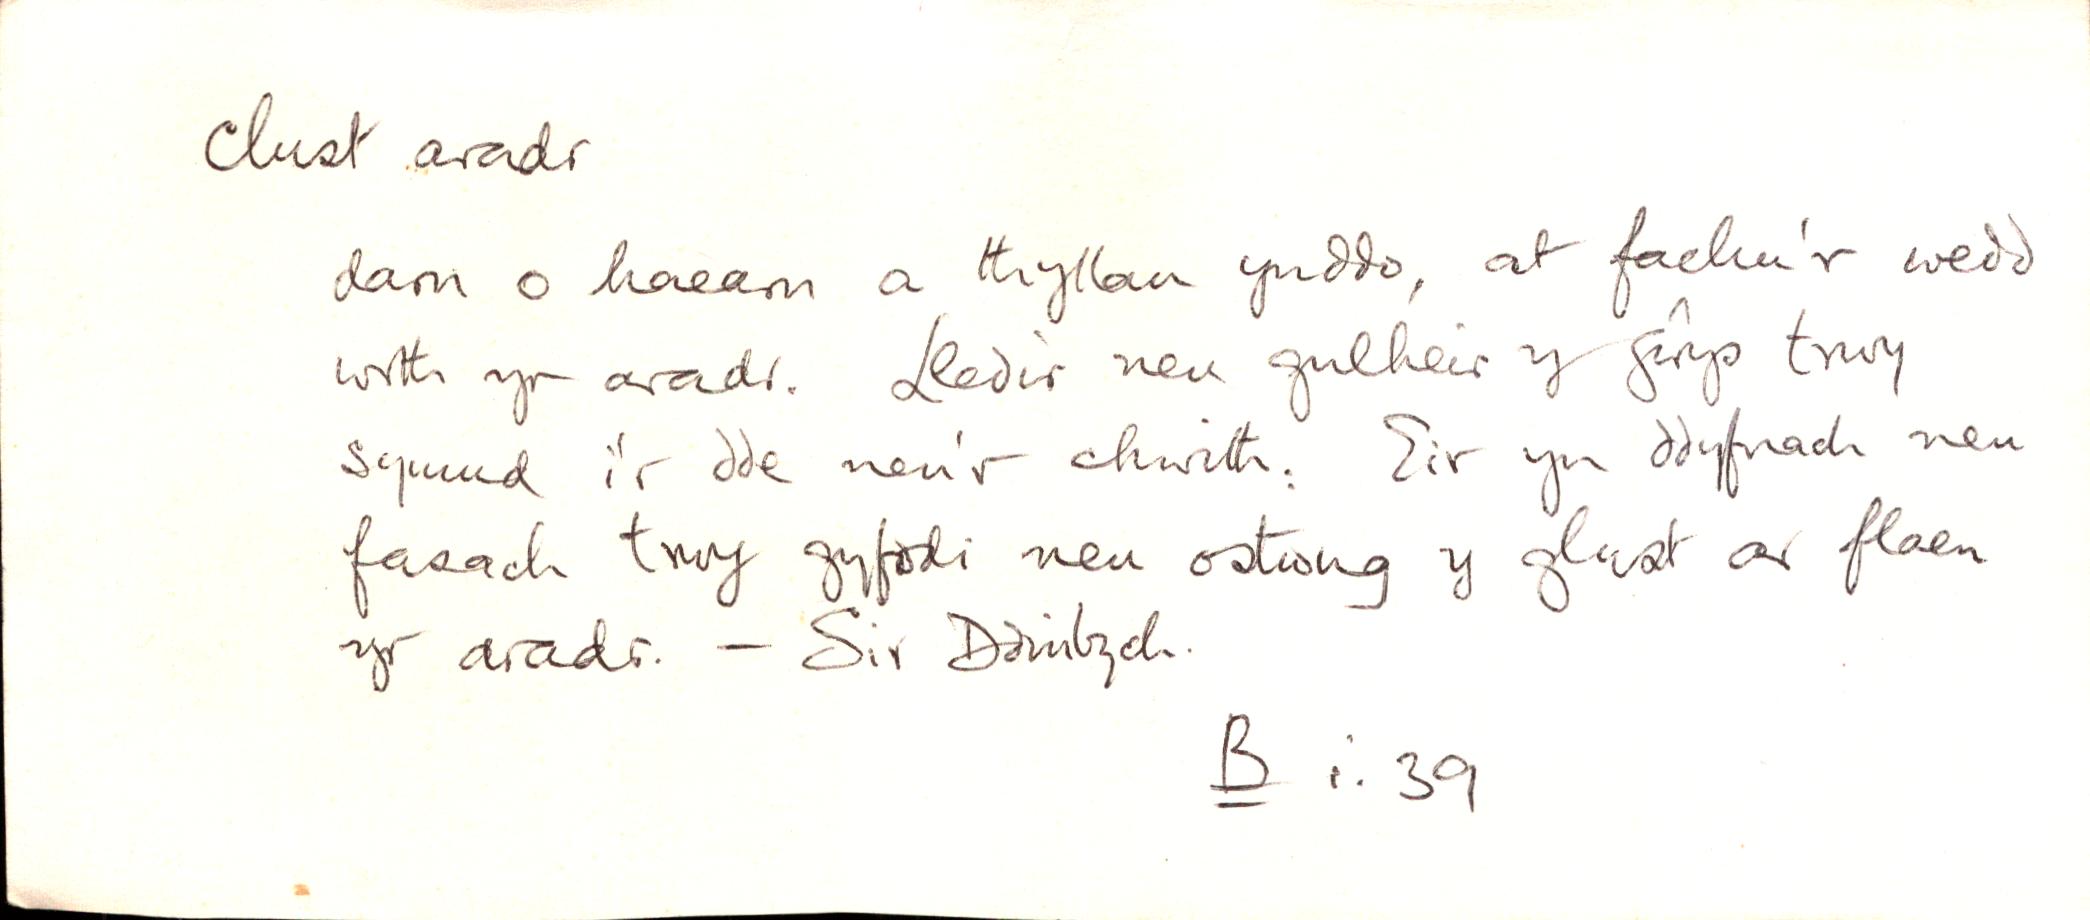 Clust aradr
darn o haearn a thyllau ynddo, at fachu'r wedd
wrth yr aradr. Lledir neu gulheir y gŵys trwy
symud i'r dde neu'r chwith. Eir yn ddyfnach neu
fasach trwy gyfodi neu ostwng y glust ar flaen
yr aradr. – Sir Ddinbych.
B i. 39